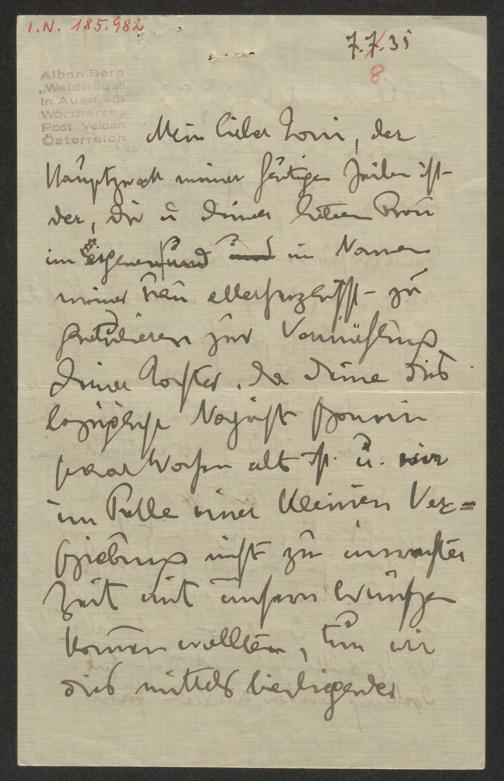 I.N. 185.982
7.7.35
8.
Alban Berg
„Waldhaus"
in Auen am
Wörthersee
Post Velden
Österreich
Mein lieber , der
Hauptzweck meiner heutigen Zeilen ist
der, Dir u Deiner lieben Frau
im eigenen und im Namen
meiner Frau allerherzlichst zu
gratulieren zur Vermählung
Deiner Tochter. Da diese
Nachricht schon ein
paar Wochen alt ist u. wir
im Falle einer kleinen Ver=
nicht zu
Zeit mit unsern Wünschen
kommen wollten, tun wir
dies mittels beiliegender